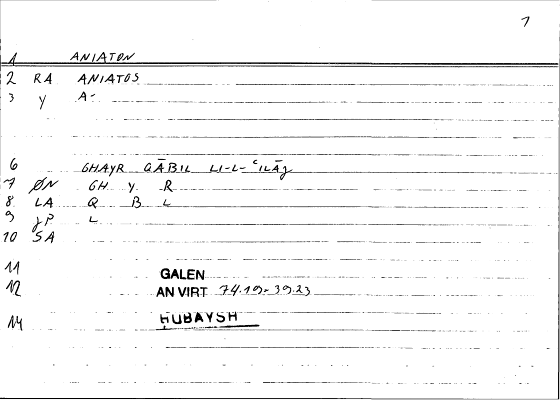 1
1 ANIATON
2 RA ANIATOS
3 y A-
6 GHAYR QĀBIL LI-L-ʿILĀJ
7 ØN GH Y R
8 LA Q B L
9 JP L
10 SA
11 GALEN
12 AN VIRT 74.19-39.23
14 HUBAYSH